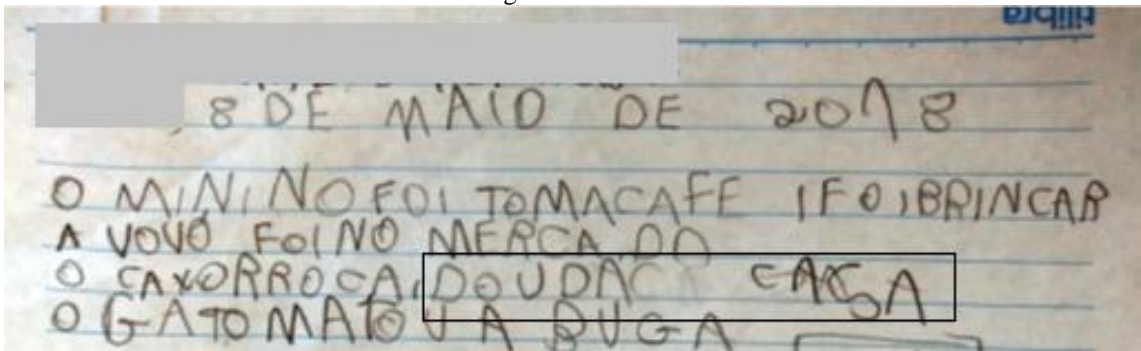 tilibra
, 8 DE MAIO DE 2018
O MININO FOI TOMACAFE I FOI BRINCAR
A VOVÓ FOI NO MERCA DO
O CAXORROCAI DOUDA CASA
O GATOMATOU A BUGA